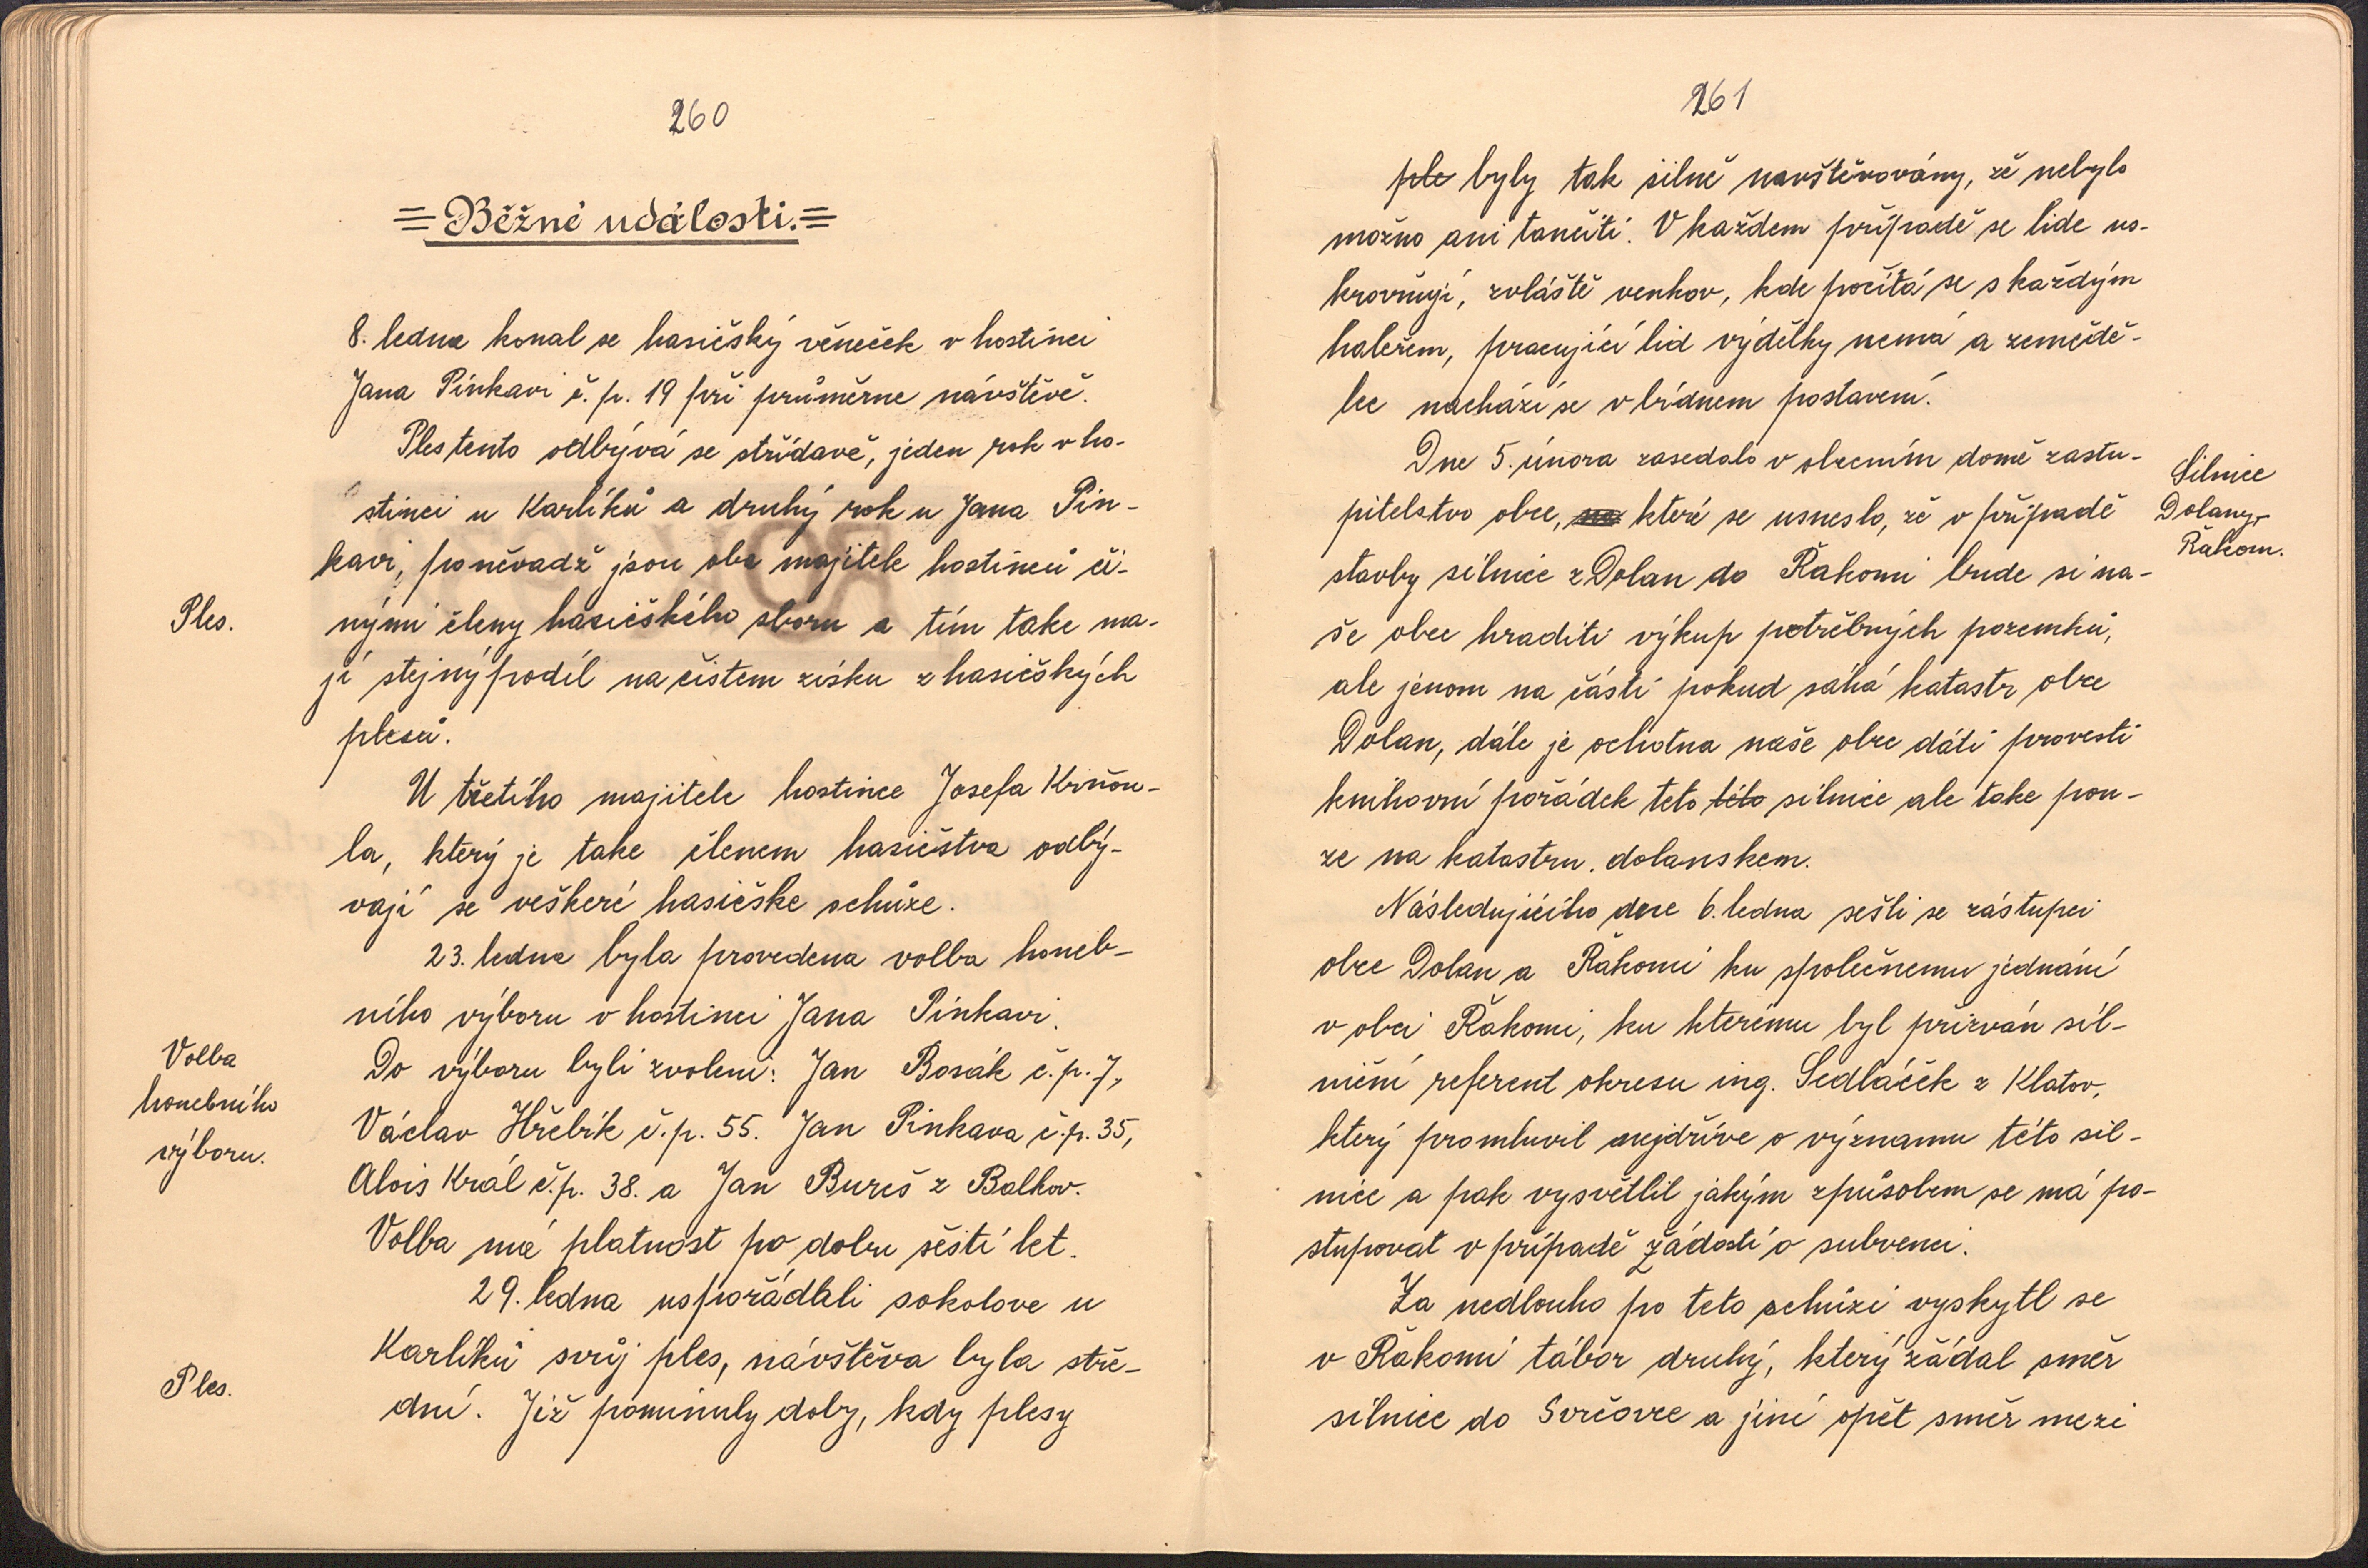 260
=Běžné události.=
8. ledna konal se hasičský věneček v hostinci
Jana Pinkavi č.p. 19 při průměrne návštěvě.
Ples tento odbývá se střídavě, jeden rok v ho-
stinci u Karlíků a druhý rok u Jana Pin-
kavi, poněvadž jsou oba majitele hostinců či-
Ples.
nými členy hasičského sboru a tím take ma-
jí stejný podíl na čistem zisku z hasičských
plesů.
U třetího majitele hostince Josefa Krňou-
la, který je take členem hasičstva odbý-
vají se veškeré hasičske schůze.
23. ledna byla provedena volba honeb-
ního výboru v hostinci Jana Pinkavi.
Volba
honebního
výboru.
Do výboru byli zvoleni: Jan Bosák č.p. 7,
Václav Hřebík č.p. 55. Jan Pinkava č.p. 35,
Alois Král č.p. 38. a Jan Bureš z Balkov.
Volba má platnost po dobu šesti let.
29. ledna uspořádali sokolove u
Karlíků svůj ples, návštěva byla stře-
Ples.
dní. Již pominuly doby, kdy plesy
261
ple byly tak silně navštěvovány, že nebylo
možno ani tančiti. V každem případě se lide us-
krovňují, zvláště venkov, kde počítá se s každým
haleřem, pracující lid výdělky nemá a zeměděl-
lec nachází se v bídnem postavení.
Dne 5. února zasedalo v obecním domě zastu-
Silnice
Dolany-
Řakom.
pitelstvo obce, na které se usneslo, že v případě
stavby silnice z Dolan do Řakomi bude si na-
še obec hraditi výkup potřebných pozemků,
ale jenom na části pokud sáhá katastr obce
Dolan, dále je ochotna naše obec dáti provesti
knihovní pořádek teto této silnice ale take pou-
ze na katastru. dolanskem.
Následujícího dne 6. ledna sešli se zástupci
obce Dolan a Řakomi ku společnemu jednání
v obci Řakomi, ku kterému byl přizván sil-
niční referent okresu ing. Sedláček z Klatov,
který promluvil nejdříve o významu této sil-
nice a pak vysvětlil jakým způsobem se má po-
stupovat v případě žádosti o subvenci.
Za nedlouho po teto schůzi vyskytl se
v Řakomi tábor druhý, který žádal směr
silnice do Svrčovce a jiní opět směr mezi